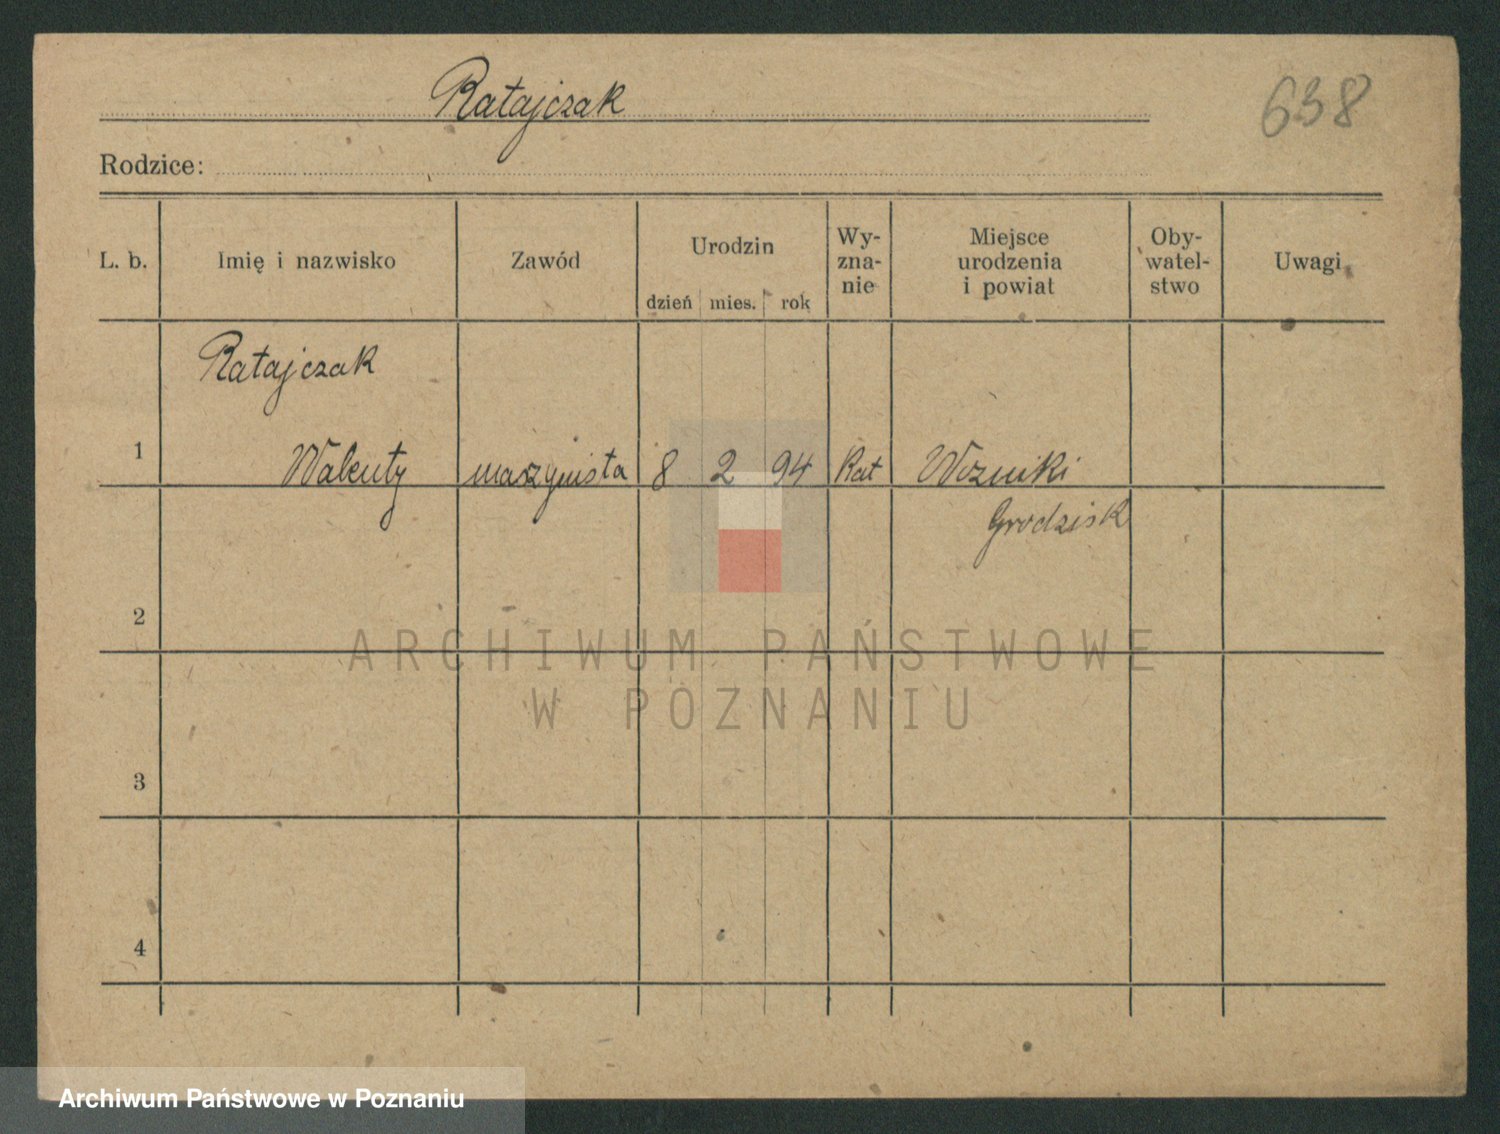 Ratajczak
638
Rodzice:
L. b.
Imię i nazwisko
Zawód
Urodzin
dzień mies. rok
Wy-
zna-
nie
Miejsce
urodzenia
i powiat
Oby-
watel-
stwo
Uwagi
Ratajczak
1 Walenty maszynista 8 2 94 kat Woźniki
Grodzisk
2
3
4
ARCHIWUM PAŃSTWOWE
W POZNANIU
Archiwum Państwowe w Poznaniu